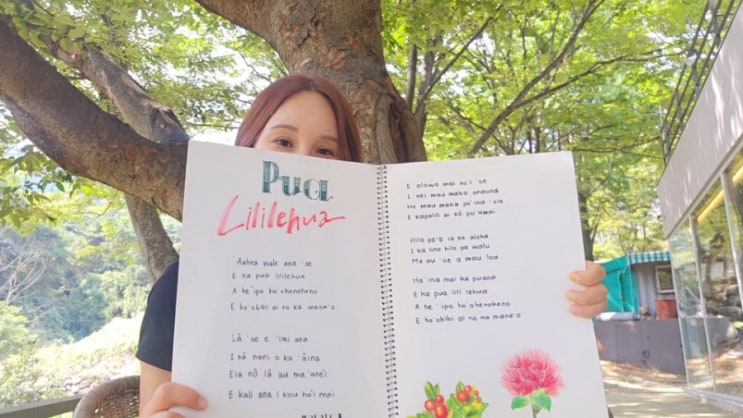 Pua
Lililehua
'Auhea wale ana 'oe
E ka pua lililehua
A he 'ipo ho'ohenoheno
E ho'ohihi ai no ka mana'o
Iā 'oe e 'imi ana
I nā nani o ka 'āina
Eia nō iā au ma'anei
E kali ana i kou ho'i mai
E alawa mai ho'i 'oe
I nēi mau maka onaona
He mau maka pa'ina 'oia
E kapalili ai kō pu'uwai
Hilo pa'a ia ke aloha
I ka lino hilo pa walu
Me au 'oe a mau loa
Ha ina mai ka puana
E ka pua lili lehua
A he 'ipo ho'ohenoheno
E ho'ohihi ai no ma mana'o